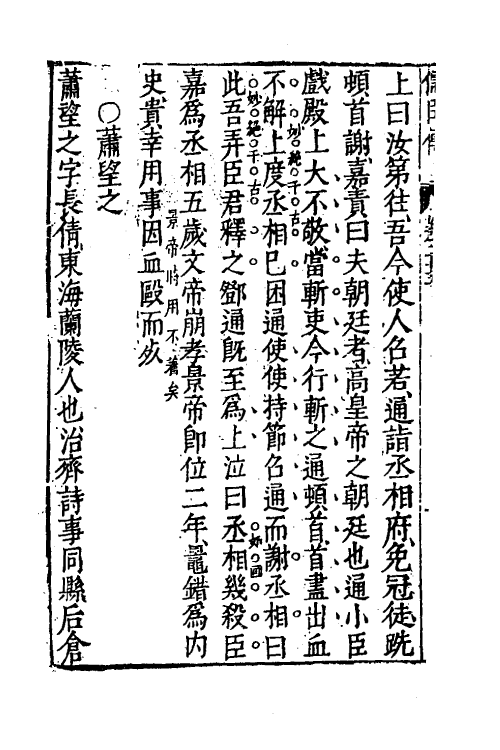 上曰汝第往吾今使人召若通詣丞相府免冠徒跣
頓首謝嘉責曰夫朝廷者高皇帝之朝廷也通小臣
戲殿上大不敬當斬吏今行斬之通頓首首盡出血
妙絕千古
不解上度丞相已困通使使持節召通而謝丞相曰
妙絕千古
此吾弄臣君釋之鄧通旣至爲上泣曰丞相幾殺臣
嘉爲丞相五歲文帝崩孝景帝卽位二年鼂錯爲内
景帝時用不著矣
史貴幸用事因血毆而死
○蕭望之
蕭望之字長倩東海蘭陵人也治齊詩事同縣后倉